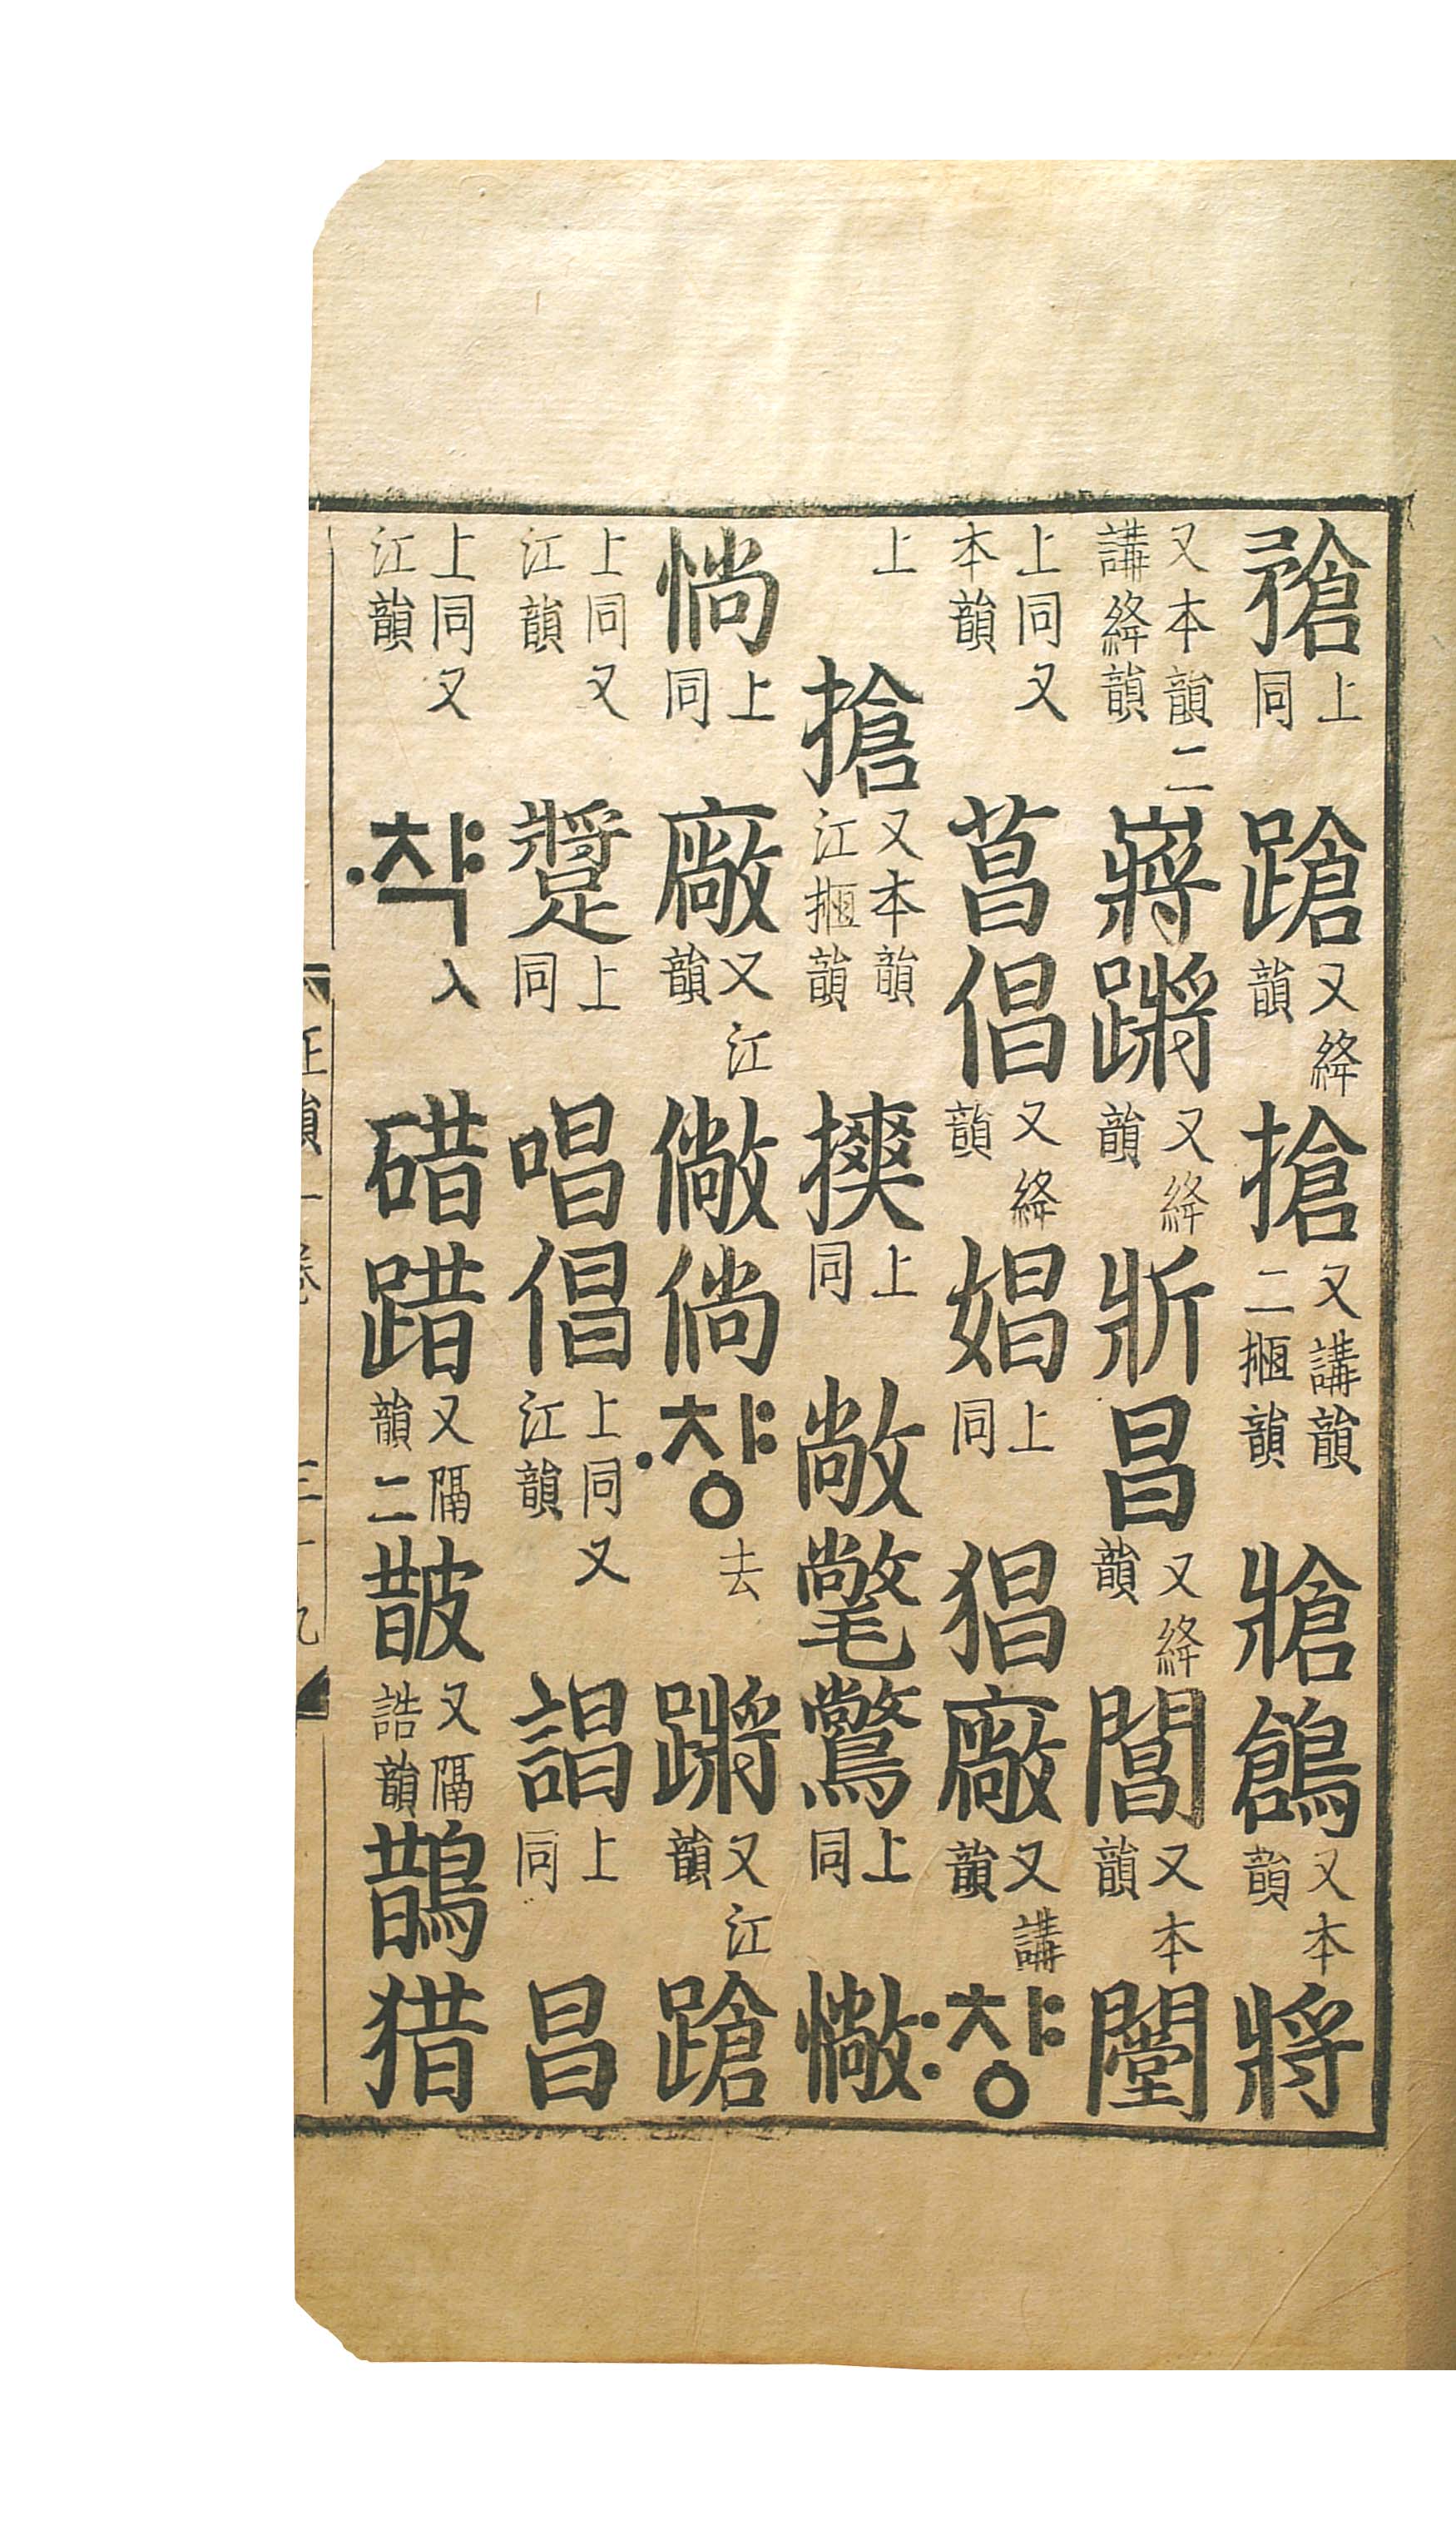 㢡上同蹌又絳韻搶又講韻二㧽韻牄鶬又本韻將
又本韻二講絳韻嶈蹡又絳韻斨昌又絳韻閶又本韻闛
上同又本韻菖倡又絳韻娼上同猖廠又講韻챵
上搶又本韻江㧽韻摤上同敞氅鷩上同憿
惝上同廠又江韻僘倘챵去蹡又江韻蹌
上同又江韻躞上同唱倡上同又江韻誯上同昌
上同又江韻챡入碏踖又隔韻二皵又隔誥韻鵲猎